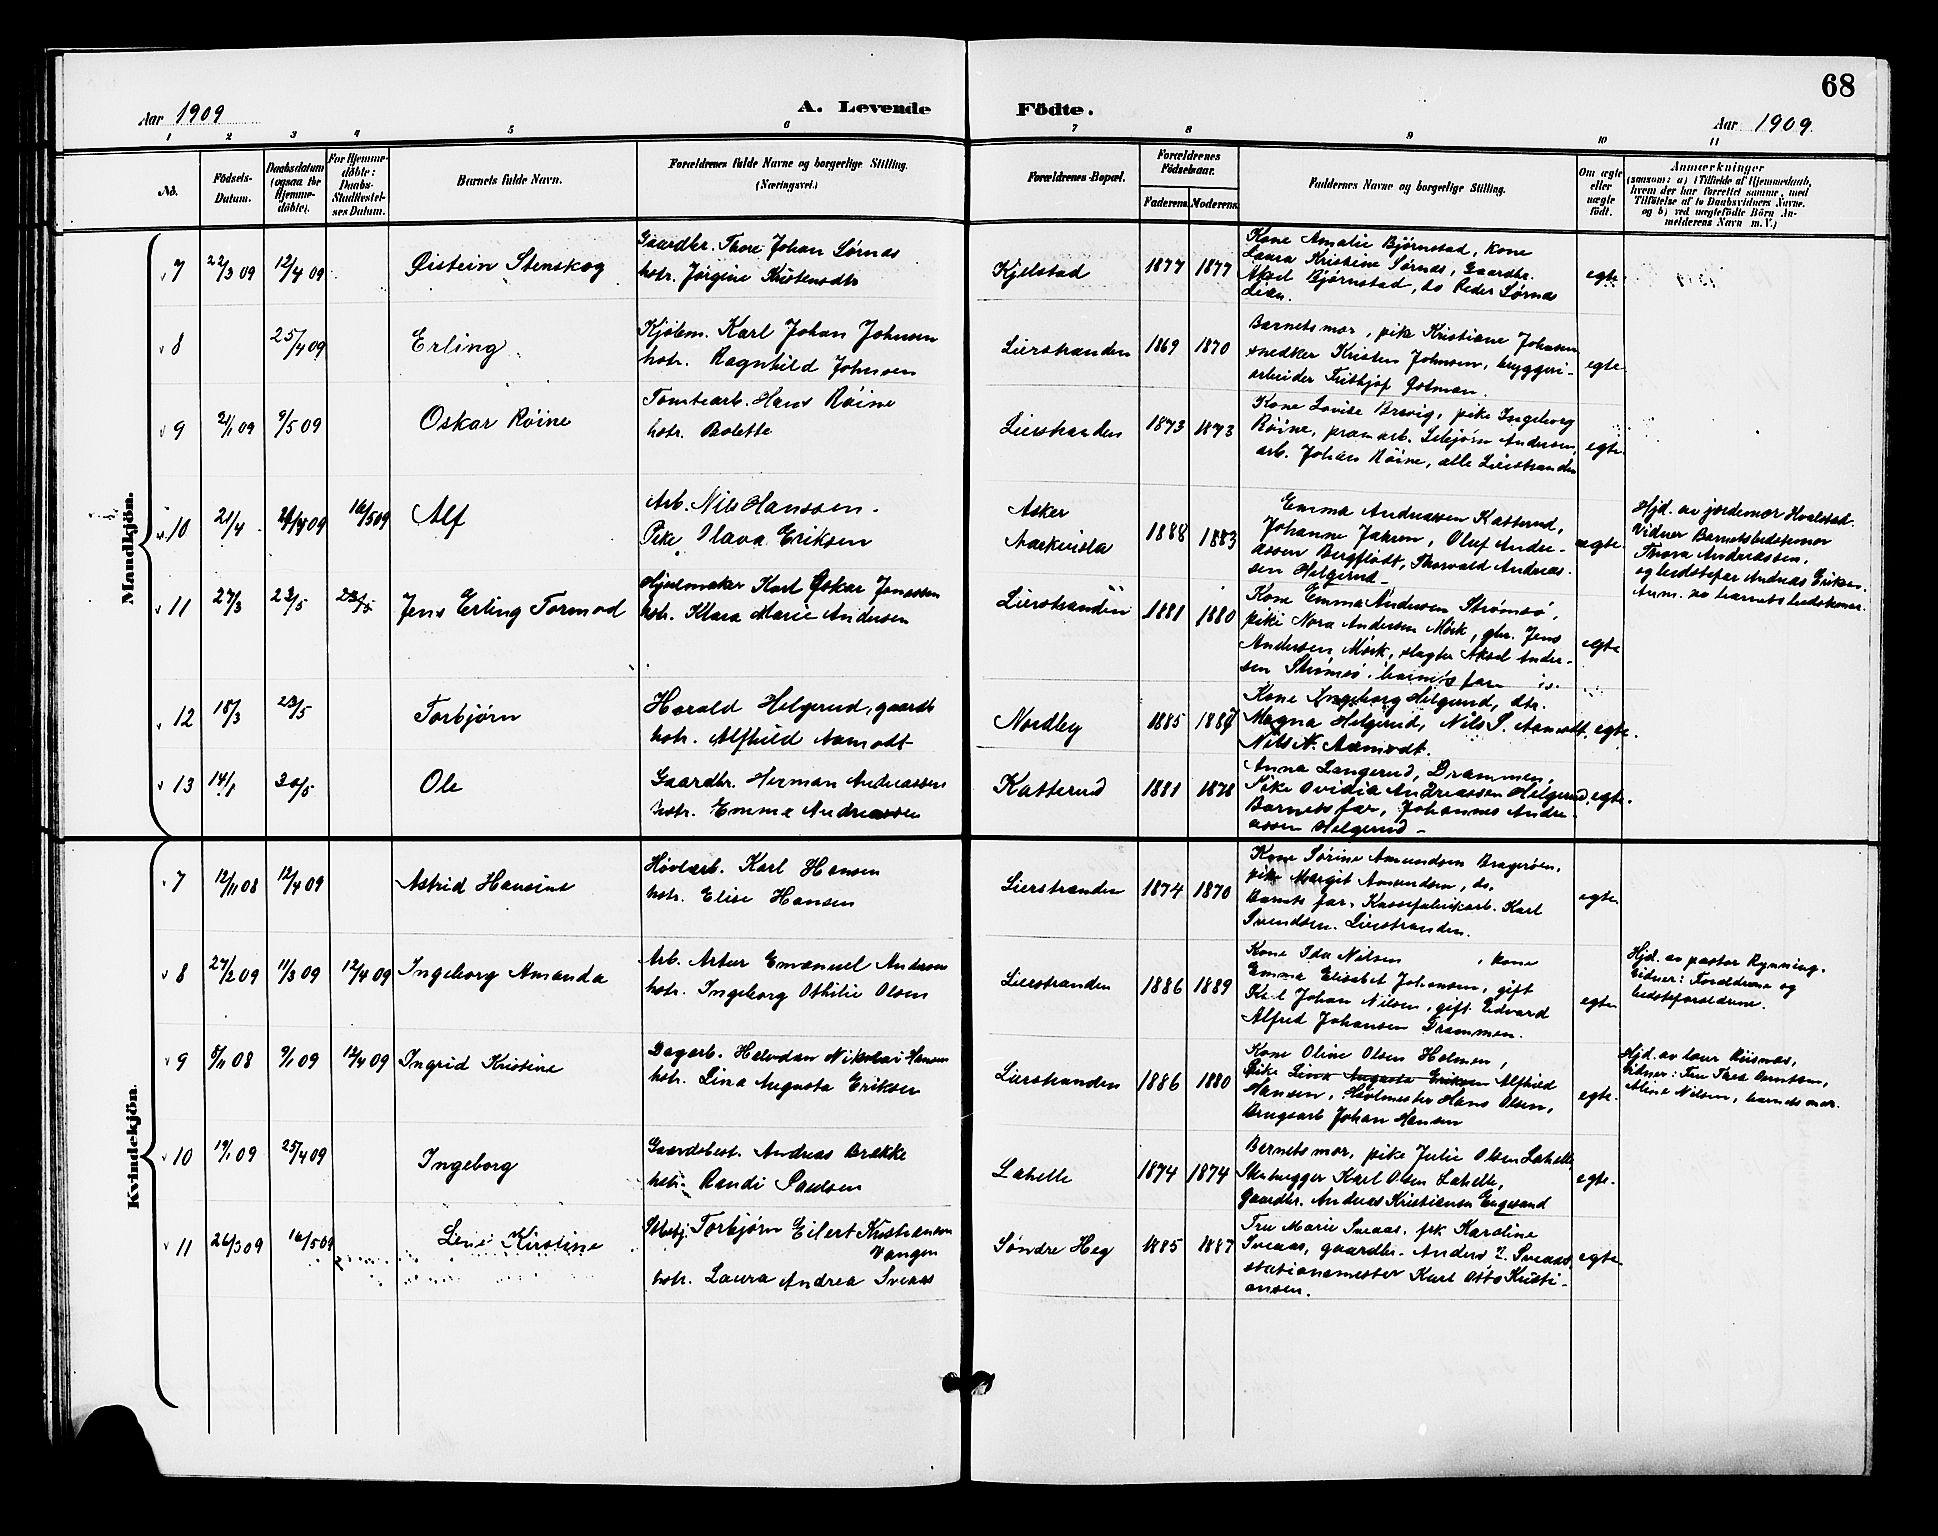 68
Aar 1909
A. Levende Födte.
Aar 1909.
1 2 3 4 5 6 7 8 9 10 11
No.
Födsels-Datum.
Daabsdatum (ogsaa for Hjemmedöbte).
For Hjemmedöbte: Daabs-Stadfæstelses Datum.
Barnets fulde Navn.
Forældrenes fulde Navne og borgerlige Stilling.
(Næringsvei.)
Forældrenes Bopæl.
Forældrenes Födselsaar.
Faderens. Moderens.
Faddernes Navne og borgerlige Stilling.
Om ægte eller uægte födt.
Anmærkninger
(saasom: a) i Tilfælde af Hjemmedaab,
hvem der har forrettet samme, med
Tilföielse af to Daabsvidners Navne.
og b) ved uægtefödte Börn An-
melderens Navn m. V.)
Mandkjön.
7 22/3 09 12/4 09 Øistein Stenskog
Gaardbr. Thore Johan Sørnas
hstr. Jørgine Kristensdtr
Kjelstad 1877 1877
Kone Amalie Bjørnstad, kone
Laura Kristine Sørnas, Gaardbr.
Aksel Bjørnstad, do Peder Sørnas
Lien.
egte.
8 25/4 09 Erling
Kjølem. Karl Johan Johnsen
hstr. Ragnhild Johnsen
Lierstranden 1869 1870
Barnets mor, pike Kristiane Johnsen
snedker Kristen Johnsen, bryggeri-
arbeider Frithjof Østman.
egte
9 21/1 09 9/5 09 Oskar Røine
Tomtearb. Hans Røine
hstr. Bolette
Lierstranden 1873 1873
Kone Lovise Brevig, pike Ingeborg
Røine, pramarb. Andersen,
arb. Johan Røine, alle Lierstranden
egte.
10 21/4 16/5 09 Alf
Arb. Nils Hanssen.
Pike Olava Eriksen
Asker
1888 1883
Emma Andreassen Katterud,
Johanne Jahren, Oluf Andre-
assen Bergflødt, Thorvald Andreas-
sen Helgerud.
uegte
Hjd. av jordemor Hvalstad.
Vidner Barnets bedstemor
Thora Andreassen,
og bedstefar Andreas Eriksen.
Anm. av barnets bedstemor.
11 27/3 23/5 23/5 Jens Erling Tormod
Hjulmaker Karl Oskar Jonassen
hstr. Klara Marie Andersen
Lierstranden 1881 1880
Kone Emma Andersen Strømsø,
pike Nora Andersen Mørk, gbr. Jens
Andersen Mørk, slagter Aksel Ander-
sen Strømsø. barnets far
egte
12 18/3 23/5 Torbjørn
Harald Helgerud, gaardb
hstr. Alfhild Aamodt
Nordby 1885 1887
Kone Ingeborg Helgerud, dtr.
Magna Helgerud, Nils S. Aamodt,
Nils N. Aamodt.
egte.
13 14/1 30/5 Ole
Gaardbr. Herman Andreassen
hstr. Emma Andreassen
Katterud 1881 1878
Anna Langerud, Drammen,
Pike Ovidia Andreassen Helgerud,
Barnets far, Johannes Andre-
assen Helgerud
egte.
Kvindekjön.
7 12/11 08 12/4 09 Astrid Hansine
Høvlearb. Karl Hansen
hstr. Elise Hansen
Lierstranden 1874 1870
Kone Sørine Amundsen Bragerøen,
pike Margit Amundsen, do.
Barnets far. Kassefabrikarb. Karl
Svendsen. Lierstranden.
egte.
8 27/2 09 11/3 09 12/4 09 Ingeborg Amanda
Arb. Artur Emanuel Andersen
hstr. Ingeborg Othilie Olsen
Lierstranden 1886 1889
Kone Ida Nilsen, kone
Emma Elisabet Johansen, gift
Karl Johan Nilsen, gift. Edvard
Alfred Johansen Drammen.
egte
Hjd. av pastor Rynning.
Vidner: Forældrene og
bedsteforældrene.
9 5/11 08 9/1 09 12/4 09 Ingrid Kristine
Dagarb. Halvdan Nikolai Hansen
hstr. Lina Augusta Eriksen
Lierstranden 1886 1880
Kone Oline Olsen Holmen,
Pike Lina Augusta Eriksen Alfhild
Hansen, Høvlmester Hans Olsen,
Brugsarb Johan Hansen
egte.
Hjd. av lærer Riisnæs,
Vidner: Fru Thea Berntsen,
Aline Nilsen, barnets mor.
10 19/1 09 25/4 09 Ingeborg
Gaardbest. Andreas Brække
hstr. Randi Paulsen
Lahelle 1874 1874
Barnets mor, pike Julie Olsen Lahelle
Karl Olsen Lahelle,
Gaardbr. Andreas Kristiansen Engesand
egte.
11 26/3 09 16/5 09 Lene Kirstine
Torbjørn Eilert Kristiansen
Vangen
hstr. Laura Andrea Sveaas
Søndre Heg 1885 1887
Fru Marie Sveaas, frk Karoline
Sveaas, gaardbr. Anders T. Sveaas,
stationsmester Karl Otto Kristi-
ansen.
egte